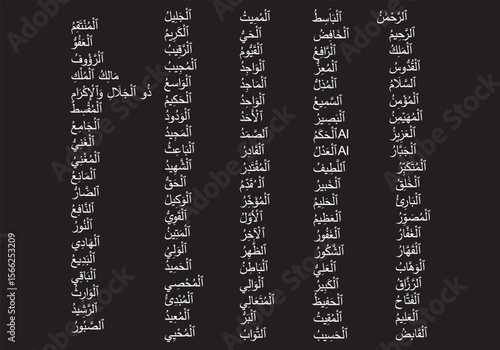 ٱلْرَّحْمَـٰنُ
ٱلْرَّحِيمُ
ٱلْمَلِكُ
ٱلْقُدُّوسُ
ٱلْسَّلَامُ
ٱلْمُؤْمِنُ
ٱلْمُهَيْمِنُ
ٱلْعَزِيزُ
ٱلْجَبَّارُ
ٱلْمُتَكَبِّرُ
ٱلْخَٰلِقُ
ٱلْبَارِئُ
ٱلْمُصَوِّرُ
ٱلْغَفَّارُ
ٱلْقَهَّارُ
ٱلْوَهَّابُ
ٱلْرَّزَّاقُ
ٱلْفَتَّاحُ
ٱلْعَلِيمُ
ٱلْقَابِضُ
ٱلْبَاسِطُ
ٱلْخَافِضُ
ٱلْرَّافِعُ
ٱلْمُعِزُّ
ٱلْمُذِلُّ
ٱلْسَّمِيعُ
ٱلْبَصِيرُ
Alٱلْحَكَمُ
Alٱلْعَدْلُ
ٱللَّطِيفُ
ٱلْخَبِيرُ
ٱلْحَلِيمُ
ٱلْعَظِيمُ
ٱلْغَفُورُ
ٱلْشَّكُورُ
ٱلْعَلِيُّ
ٱلْكَبِيرُ
ٱلْحَفِيظُ
ٱلْمُقِيتُ
ٱلْحَسِيبُ
ٱلْمُمِيتُ
ٱلْحَيُّ
ٱلْقَيُّومُ
ٱلْوَاجِدُ
ٱلْمَاجِدُ
ٱلْوَاحِدُ
ٱلْأَحَدُ
ٱلْصَّمَدُ
ٱلْقَادِرُ
ٱلْمُقْتَدِرُ
ٱلْمُقَدِّمُ
ٱلْمُؤَخِّرُ
ٱلْأَوَّلُ
ٱلْآخِرُ
ٱلْظَّٰهِرُ
ٱلْبَاطِنُ
ٱلْوَالِي
ٱلْمُتَعَالِي
ٱلْبَرُّ
ٱلْتَّوَّابُ
ٱلْجَلِيلُ
ٱلْكَرِيمُ
ٱلْرَّقِيبُ
ٱلْمُجِيبُ
ٱلْوَاسِعُ
ٱلْحَكِيمُ
ٱلْوَدُودُ
ٱلْمَجِيدُ
ٱلْبَاعِثُ
ٱلْشَّهِيدُ
ٱلْحَقُّ
ٱلْوَكِيلُ
ٱلْقَوِيُّ
ٱلْمَتِينُ
ٱلْوَلِيُّ
ٱلْحَمِيدُ
ٱلْمُحْصِي
ٱلْمُبْدِئُ
ٱلْمُعِيدُ
ٱلْمُحْيِي
ٱلْمُنْتَقِمُ
ٱلْعَفُوُّ
ٱلْرَّؤُوفُ
مَالِكُ ٱلْمُلْكِ
ذُو ٱلْجَلَالِ وَٱلْإِكْرَامِ
ٱلْمُقْسِطُ
ٱلْجَامِعُ
ٱلْغَنِيُّ
ٱلْمُغْنِيُّ
ٱلْمَانِعُ
ٱلْضَّارُّ
ٱلْنَّافِعُ
ٱلْنُّورُ
ٱلْهَادِي
ٱلْبَدِيعُ
ٱلْبَاقِي
ٱلْوَارِثُ
ٱلْرَّشِيدُ
ٱلْصَّبُورُ
Adobe Stock | #1566253209